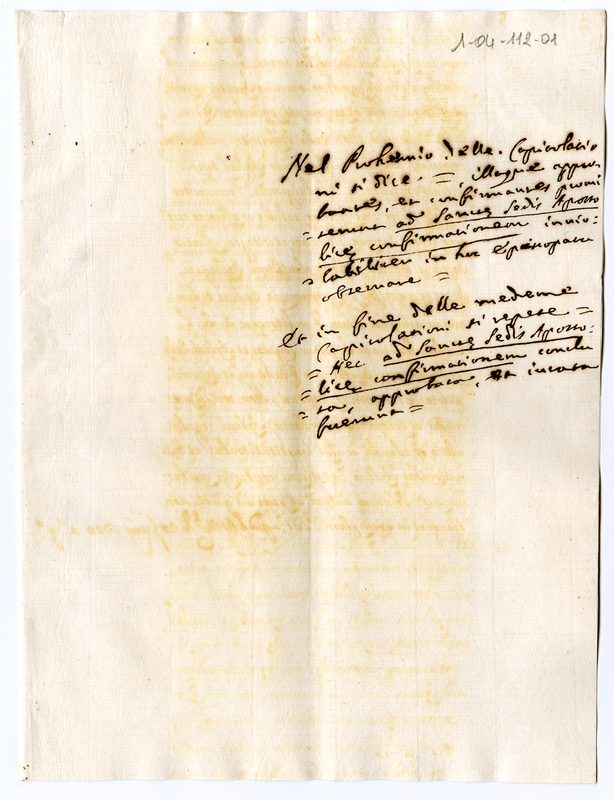 1-04-112-01
Nel Prohemio delle Capitolatio
ni si dice = illaque appro
bantes, et confirmantes promi
= temus ad Sanctę Sedis Aposto
licę confirmationem invio=
= labiliter in hoc Episcopatu
observare =
Et in fine delle medeme
Capitolationi si repete =
= Hec ad Sanctę Sedis Aposto=
= licę confirmationem conclu
= sa, approbata, et iurata
fuerunt =